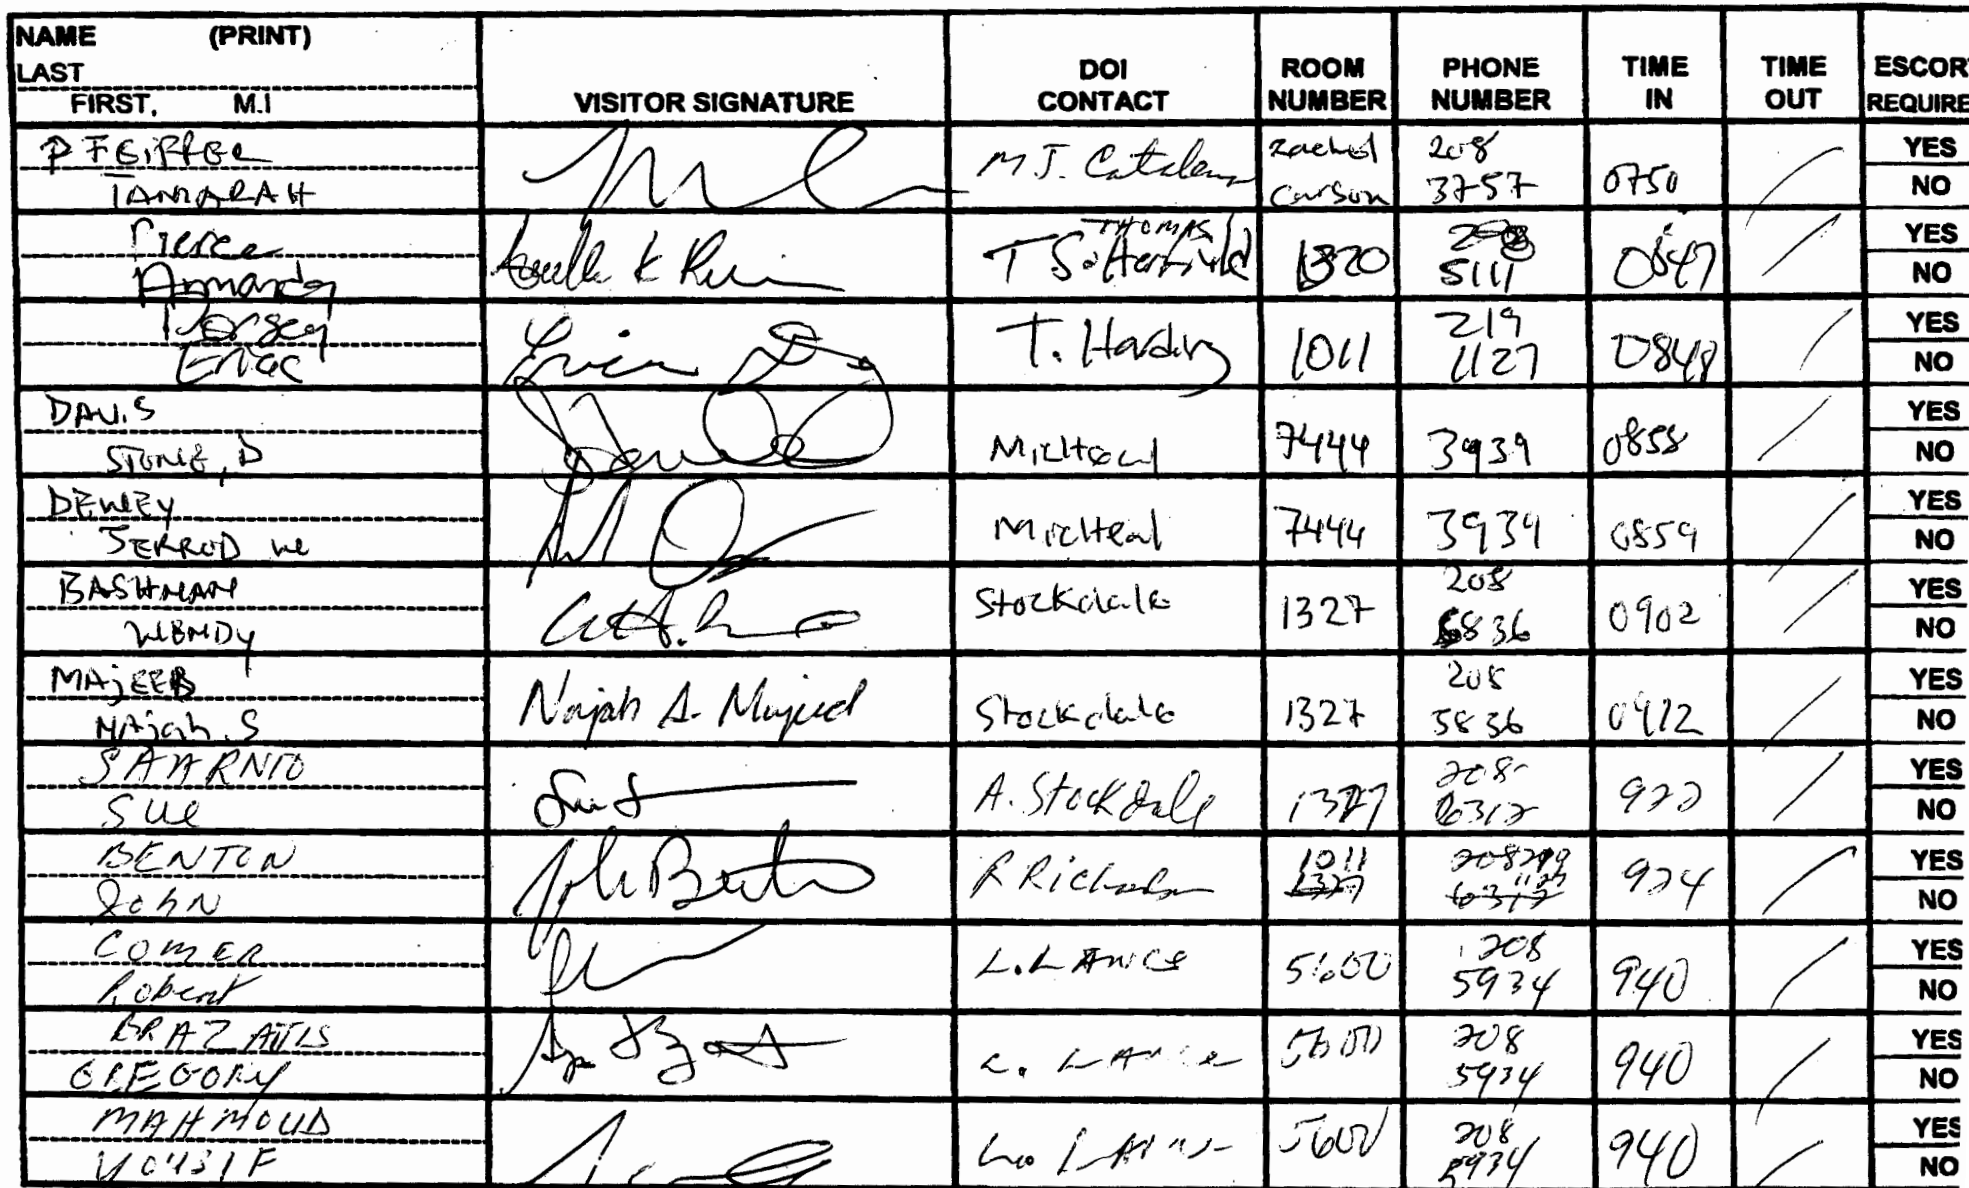 NAME (PRINT)
LAST
FIRST, M.I
VISITOR SIGNATURE
DOI
CONTACT
ROOM
NUMBER
PHONE
NUMBER
TIME
IN
TIME
OUT
ESCOR
REQUIRE
PFEIFFER
TAMARAH
M J. Catalano
Rachel
Carson
208
3757
0750
YES
NO
Pierce
Amanda
THOMAS
T Satterfield
1320
208
5111
0847
YES
NO
Dorsey
Eric
T. Hardin
1011
219
1127
0848
YES
NO
DAVIS
STONIE, D
Micheal
7444
3939
0858
YES
NO
DEWEY
JERROD W
Micheal
7444
3939
0859
YES
NO
BASHNAN
WENDY
Stockdale
1327
208
5836
0902
YES
NO
MAJEEB
NAjah. S
Najah A. Majied
Stockdale
1327
208
5836
0912
YES
NO
SAARNIO
SUE
A. Stockdale
1327
208
6312
922
YES
NO
BENTON
John
John Benton
1011
1327
208219
1127
6312
924
YES
NO
COMER
Robert
L. LANCE
5600
208
5934
940
YES
NO
BRAZAITIS
GREGORY
L. LANCE
5600
208
5934
940
YES
NO
MAHMOUD
5600
208
5934
940
YES
NO